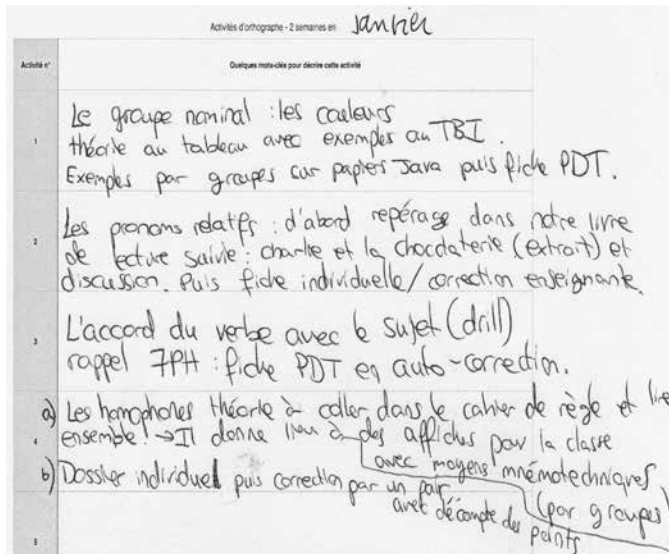 Activités d'orthographe - 2 semaines en janvier
Activité n°
Quelques mots-clés pour décrire cette activité
1
Le groupe nominal : les couleurs
théorie au tableau avec exemples au TBI.
Exemples par groupes sur papiers Java puis fiche PDT.
2
Les pronoms relatifs : d'abord repérage dans notre livre
de lecture suivie : charlie et la chocolaterie (extrait) et
discussion. Puis fiche individuelle / correction enseignante.
3
L'accord du verbe avec le sujet (drill)
rappel 7PH : fiche PDT en auto-correction.
4
a) Les homophones théorie à coller dans le cahier de règle et lire
ensemble ! → Il donne lieu à des affiches pour la classe
avec moyens mnémotechniques
(par groupes)
b) Dossier individuel puis correction par un pair
avec décompte des points
5